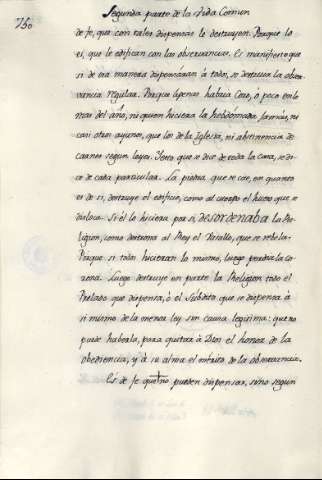 750
Segunda parte de la Vida Comun
de fe, que con tales dispensas le destruyen. Porque lo
es, que le edifican con las observancias. Es manifiesto que
si de esa manera dispensaran à todos, se destruia la obser-
vancia regular. Porque apenas habria Coro, ó poco en lo
mas del año, ni quien hiciera la hebdomada jamas, ni
casi otros ayunos, que los de la Iglesia, ni abstinencia de
carnes segun leyes. Y esto que se dice de toda la casa, se di-
ce de cada particular. La piedra que se cae, en quanto
es de si, destruye el edificio, como al cuerpo el hueso que se
disloca. Si él lo hiciera por si, desordenaba la Re-
ligion, como destrona al Rey el Vasallo, que se rebela.
Porque si todos hicieran lo mismo, luego perdia la co-
rona. Luego destruye en parte la Religion todo el
Prelado que dispensa, ó el Súbdito que se dispensa à
si mismo de la menor ley sin causa legitima: que no
puede haberla, para quitar à Dios el honor de la
obediencia, y à su alma el mérito de la observancia.
Es de fe que no pueden dispensar, sino segun